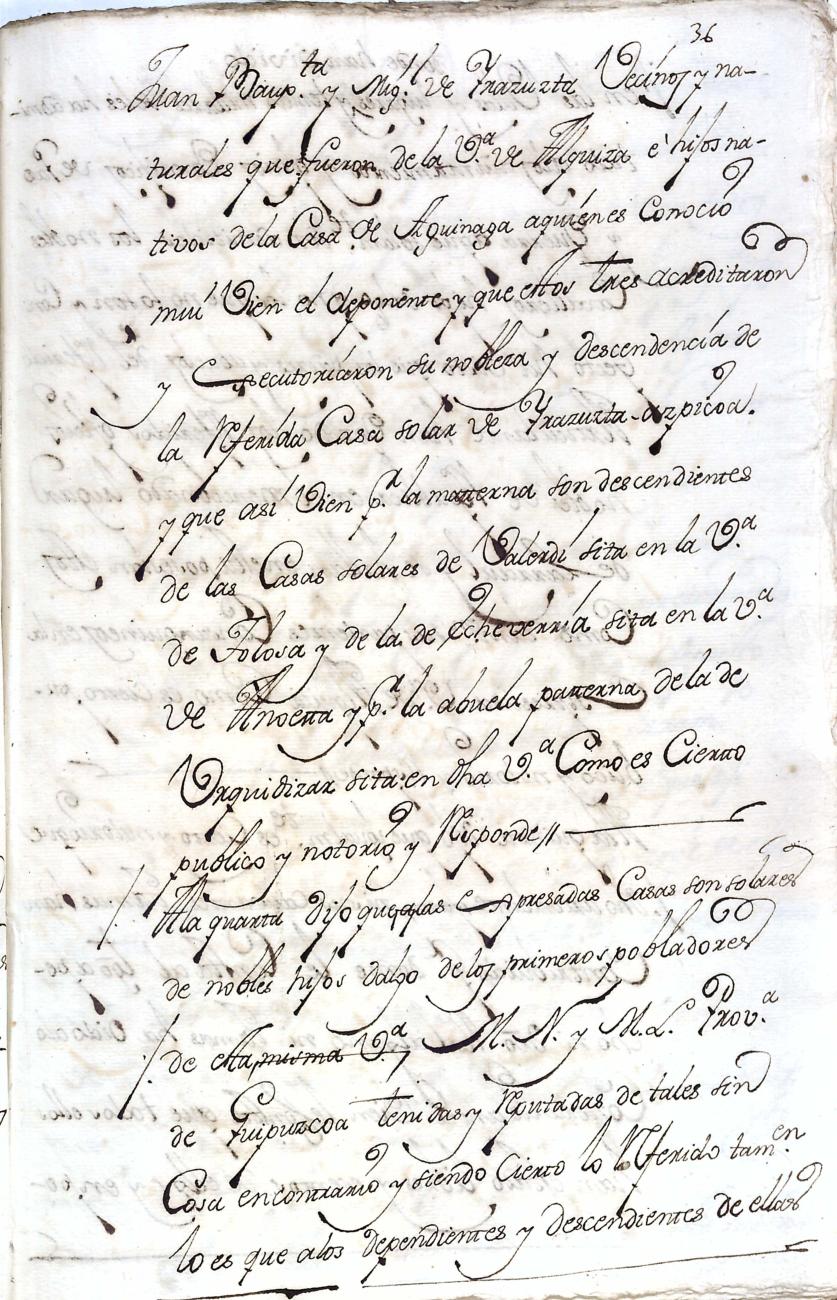 36
Juan Baup.ta y Mig.l de Yrazuzta Vecinos y na-
turales que fueron de la V.a de Alquiza é hijos na-
tivos de la Casa de Aguinaga aquienes Conoció
mui Vien el deponente y que estos tres acreditaron
y Executoriáron su nobleza y descendencía de
la Referída Casa solar de Yrazuzta-azpicoa.
y que así Vien p.r la matterna son descendientes
de las Casas solares de Valerdí sita en la V.a
de Tolosa y de la de Echeverría sita en la V.a
de Anoetta y p.r la abuela patterna de la de
Urquidizar sita en dha V.a Como es Cierto
publico y notorio y Responde //
Ala quarta dijo que las Expresadas Casas son solares
de nobles hijos dalgo de los primeros pobladores
de esta misma V.a M. N. y M. L. Prov.a
de Guipuzcoa tenidas y Reputadas de tales sin
Cosa en contrario y siendo Cierto lo Referido tam.en
lo es que alos dependientes y descendientes de ellas